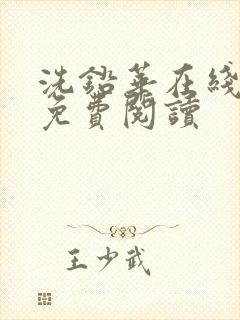 洗鉛華在綫
免費閱讀
王少武